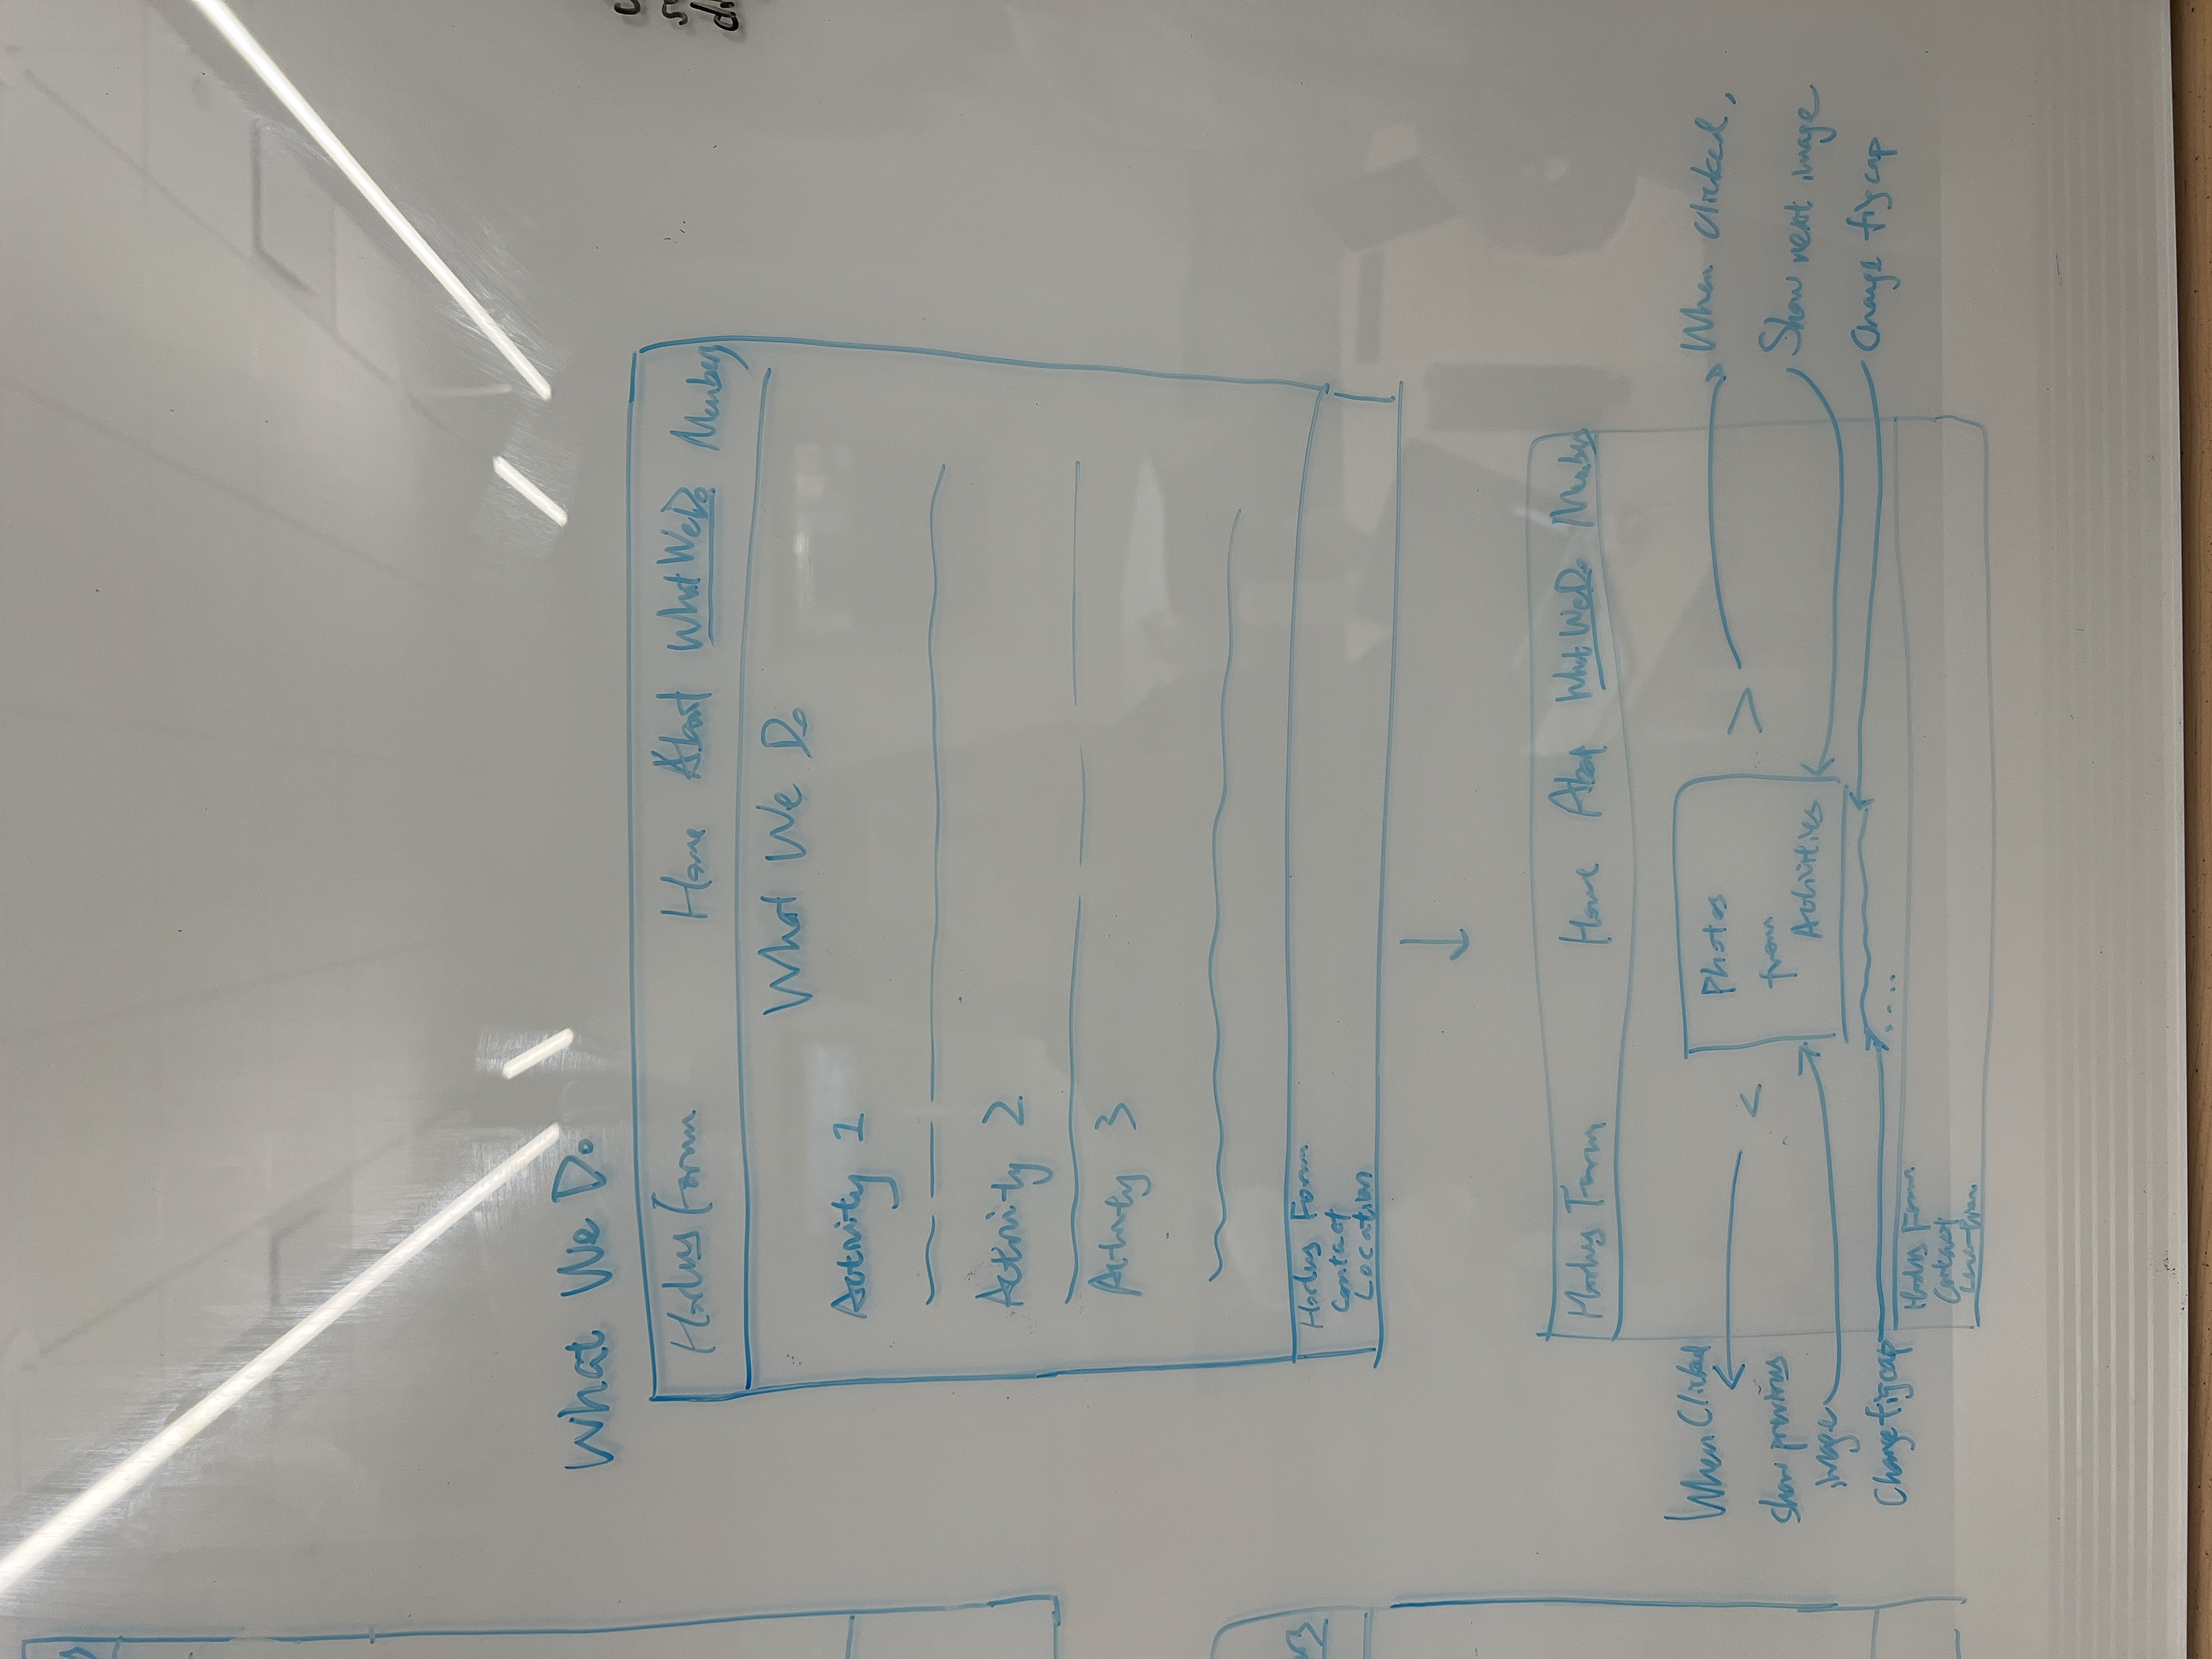 What We Do
Home About What We Do Members
What We Do
Activity 1
Activity 2
Activity 3
Form
Contact
Location
Form Home About What We Do Members
When Clicked
show previous
image
Change figcap
<
Photos
from
Activities
>
When clicked,
Show next image
Change figcap
....
Form
Contact
Location